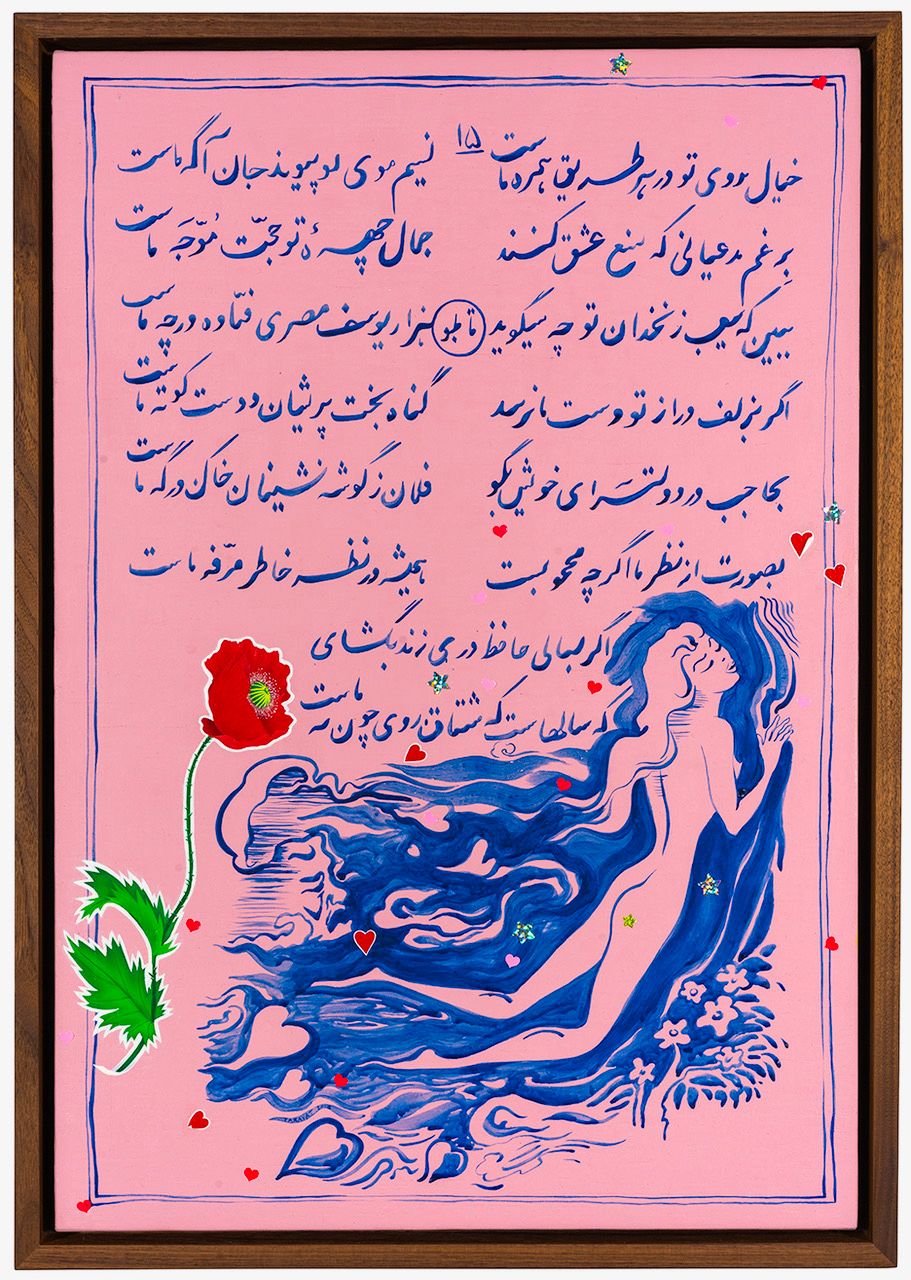 ۱۵
خیال روی تو در هر طریق همره ماست نسیم موی تو پیوند جان آگه ماست
برغم مدعیانی که منع عشق کنند جمال چهرهٔ تو حجّت مُوَجَّه ماست
ببین که سیب زنخدان تو چه میگوید هزار یوسف مصری فتاده در چه ماست
اگر بزلف دراز تو دست ما نرسد گناه بخت پریشان و دست کوته ماست
بحاجب در دولتسرای خویش بگو فلان ز گوشه نشینان خاک درگه ماست
بصورت از نظر ما اگر چه محجوبست همیشه در نظر خاطر مرفّه ماست
اگر بسالی حافظ دری زند بگشای
که سالهاست که مشتاق روی چون مه ماست